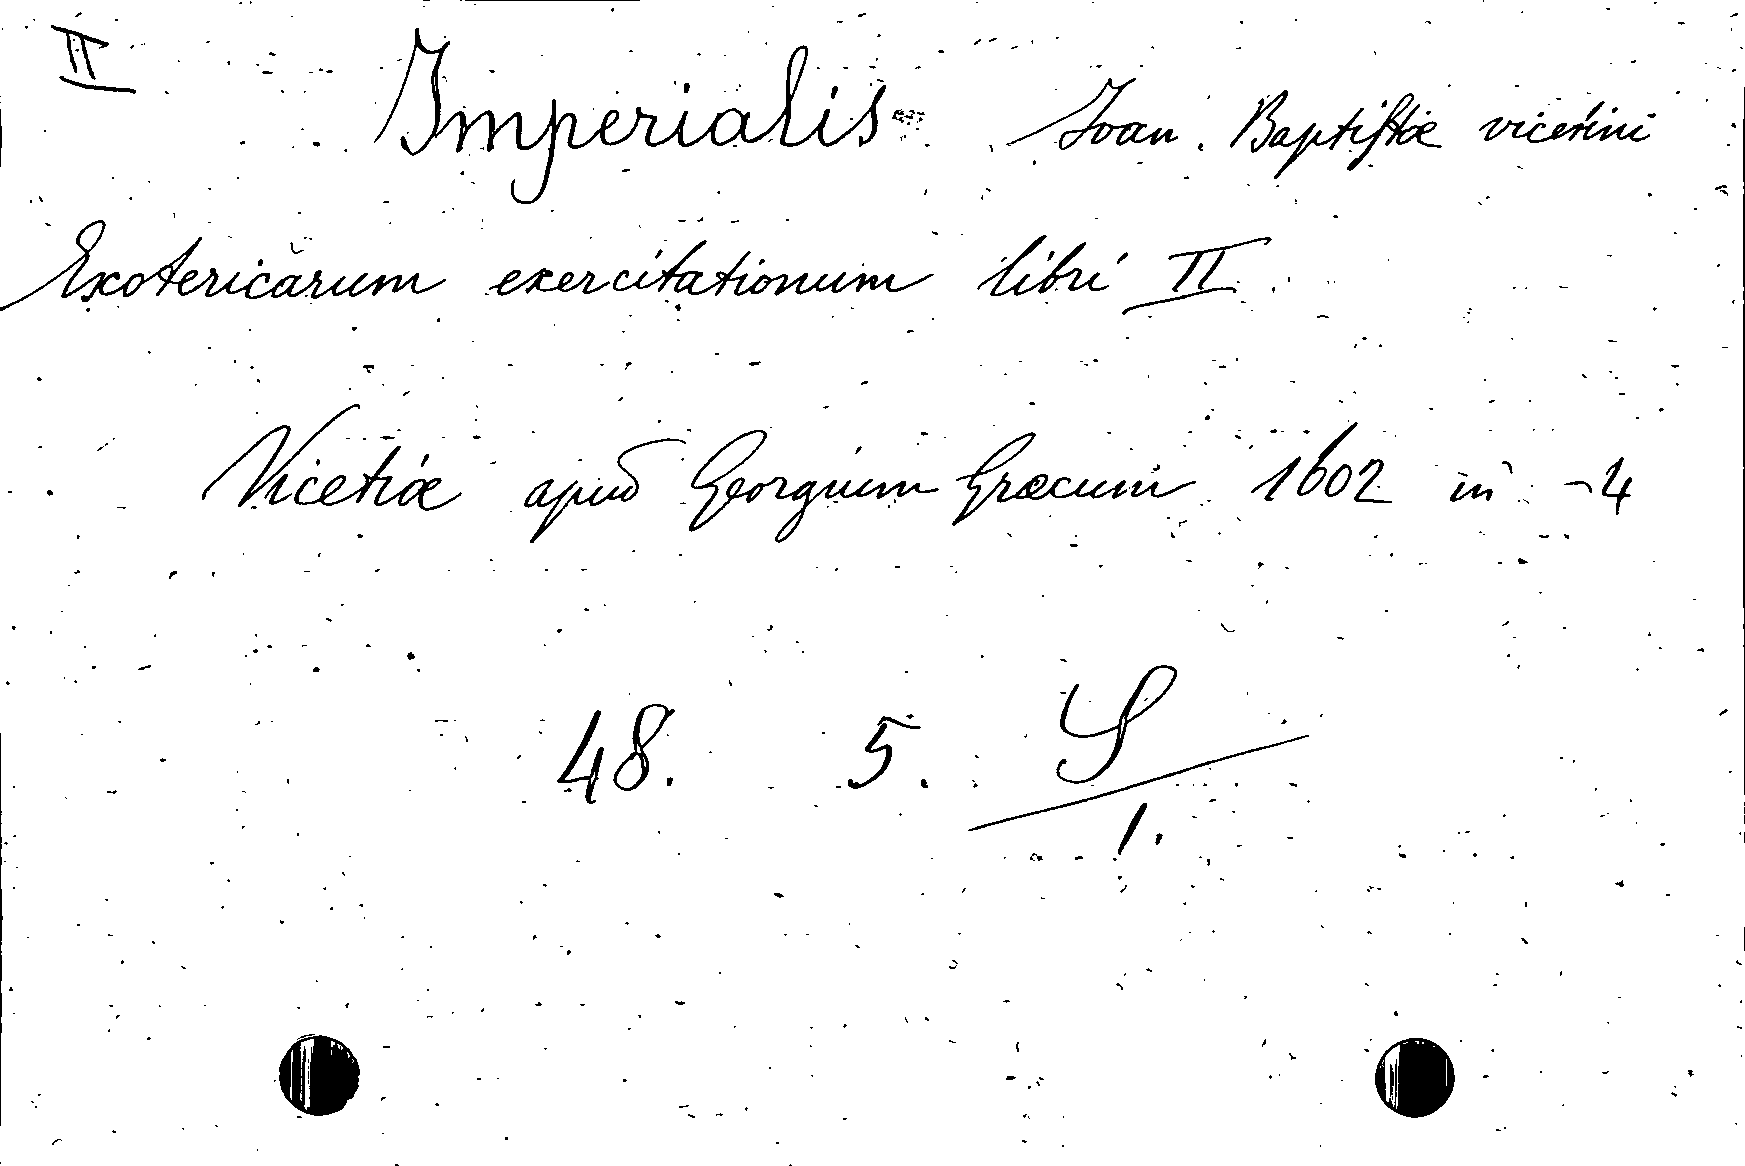 II
Imperialis Joan. Baptistæ vicetini
Exotericarum exercitationum libri II
Vicetiæ apud Georgium Græcum 1602 in -4
48. 5. S
1.